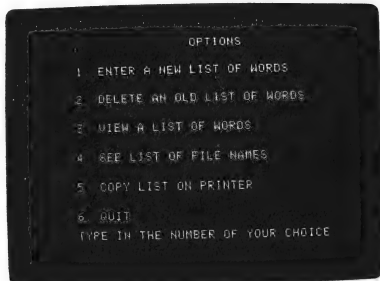 OPTIONS
1 ENTER A NEW LIST OF WORDS
2 DELETE AN OLD LIST OF WORDS
3 VIEW A LIST OF WORDS
4 SEE LIST OF FILE NAMES
5 COPY LIST ON PRINTER
6 QUIT
TYPE IN THE NUMBER OF YOUR CHOICE